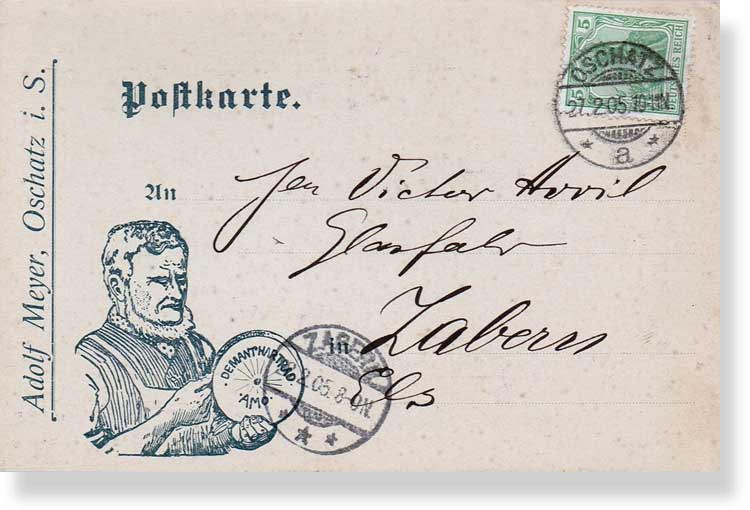 Adolf Meyer, Oschatz i. S.
Postkarte.
5
5
DEUTSCHES REICH
OSCHATZ
27.2.05.10-11N.
* a *
An
Victor
Glasfabr
in Zabern
Els
DEMANTHARTRAD
"AMO"
ZABERN
2.05.8-9N.
* *